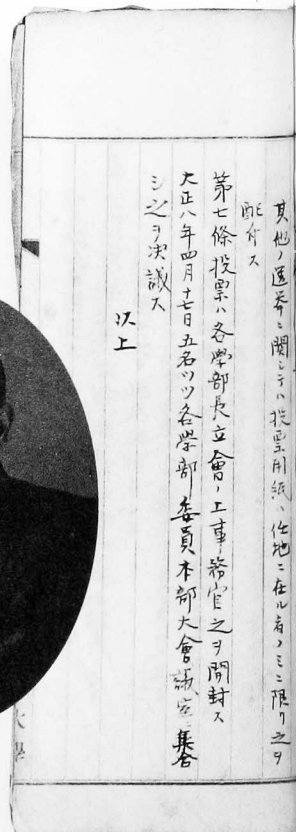 其他ノ選挙ニ関シテハ投票用紙ハ他地ニ在ル者ノミニ限リ之ヲ
配付ス
第七條投票ハ各學部長立會ノ上事務官之ヲ開封ス
大正八年四月十七日五名ツツ各學部委員本部大會議室ニ集合
シ之ヲ決議ス
以上
大學